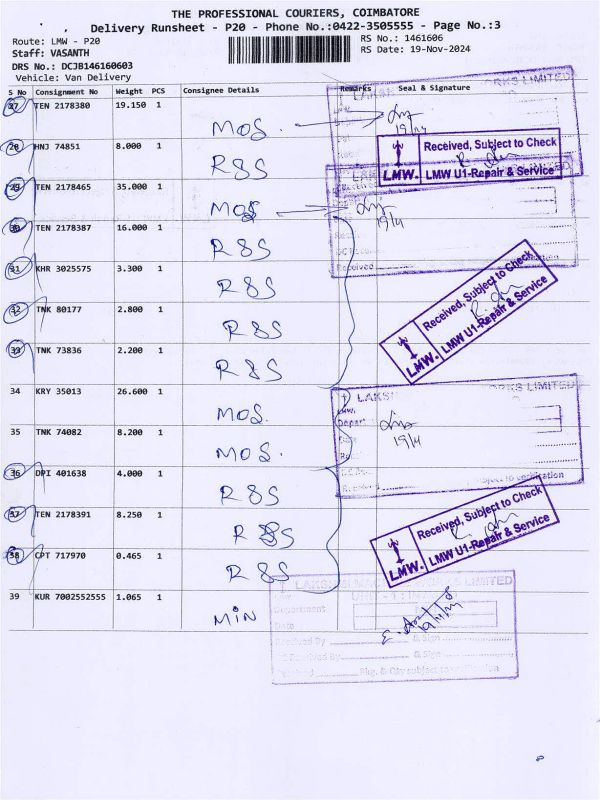 THE PROFESSIONAL COURIERS, COIMBATORE
Delivery Runsheet - P20 - Phone No.:0422-3505555 - Page No.:3
Route: LMW - P20
RS No.: 1461606
Staff: VASANTH
RS Date: 19-Nov-2024
DRS No.: DCJB146160603
Vehicle: Van Delivery
S No Consignment No Weight PCS Consignee Details Remarks Seal & Signature
27 TEN 2178380 19.150 1
MOS.
19/11
28 HNJ 74851 8.000 1
R&S
Received, Subject to Check
LMW. LMW U1-Repair & Service
29 TEN 2178465 35.000 1
MOS
19/11
30 TEN 2178387 16.000 1
R&S
31 KHR 3025575 3.300 1
R&S
Received
Received, Subject to Check
LMW. LMW U1-Repair & Service
32 TNK 80177 2.800 1
R&S
33 TNK 73836 2.200 1
R&S
34 KRY 35013 26.600 1
MOS.
LIMITED
19/11
35 TNK 74082 8.200 1
MOS.
36 DPI 401638 4.000 1
R&S
Received, Subject to Check
LMW. LMW U1-Repair & Service
37 TEN 2178391 8.250 1
R&S
38 CPT 717970 0.465 1
R&S
39 KUR 7002552555 1.065 1
MIN
LIMITED
UNIT - 1
Department
Date
19/11/24
Received By & Sign
Received By & Sign
Pkg. & Qty subject to verification